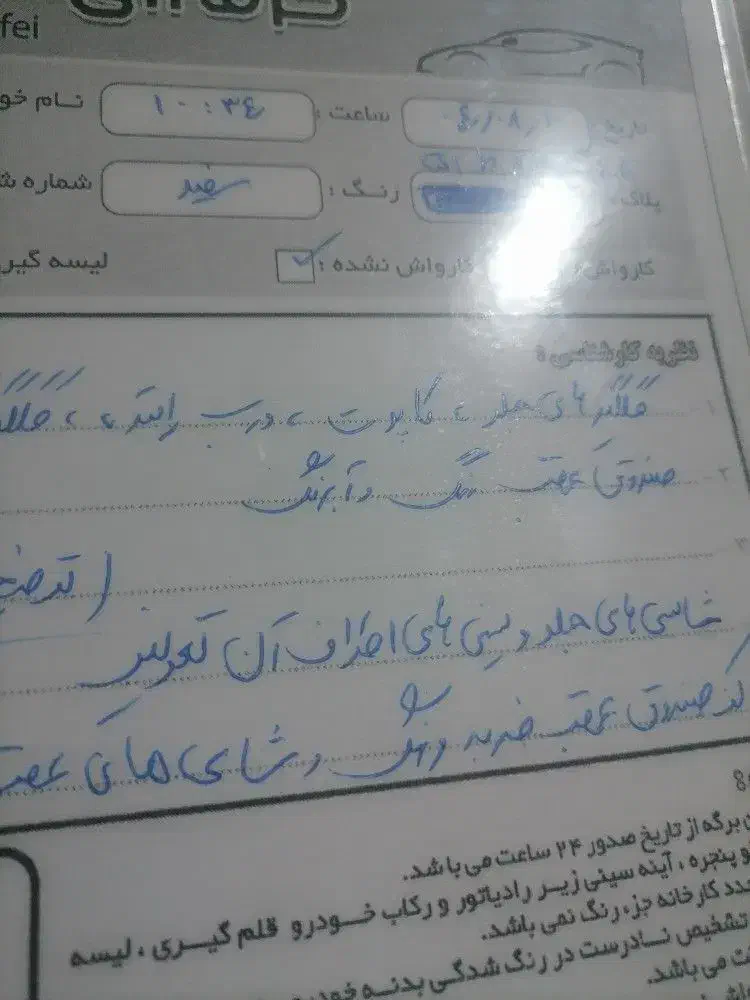 fei
تاریخ ساعت : ۱۰:۳۴ نام خو
پلاک رنگ : سفید شماره ش
کارواش کارواش نشده : لیسه گیر
نظریه کارشناسی :
۱- گلگیر های جلو ، کاپوت ، درب راننده ،
۲- صندوق عقب رنگ و آبرنگ
۳- ( توضیح
شاسی های جلو و سینی های اطراف آن تعویض
کف صندوق عقب ضربه و رنگ و شاسی های عقب
ن برگه از تاریخ صدور ۲۴ ساعت می باشد.
و پنجره ، آینه سینی زیر رادیاتور و رکاب خودرو قلم گیری ، لیسه
دد کارخانه جزء رنگ نمی باشد.
تشخیص نادرست در رنگ شدگی بدنه خودرو
ت می باشد.